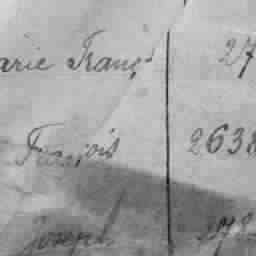 arie Franç.s 27
François 2638
Joseph